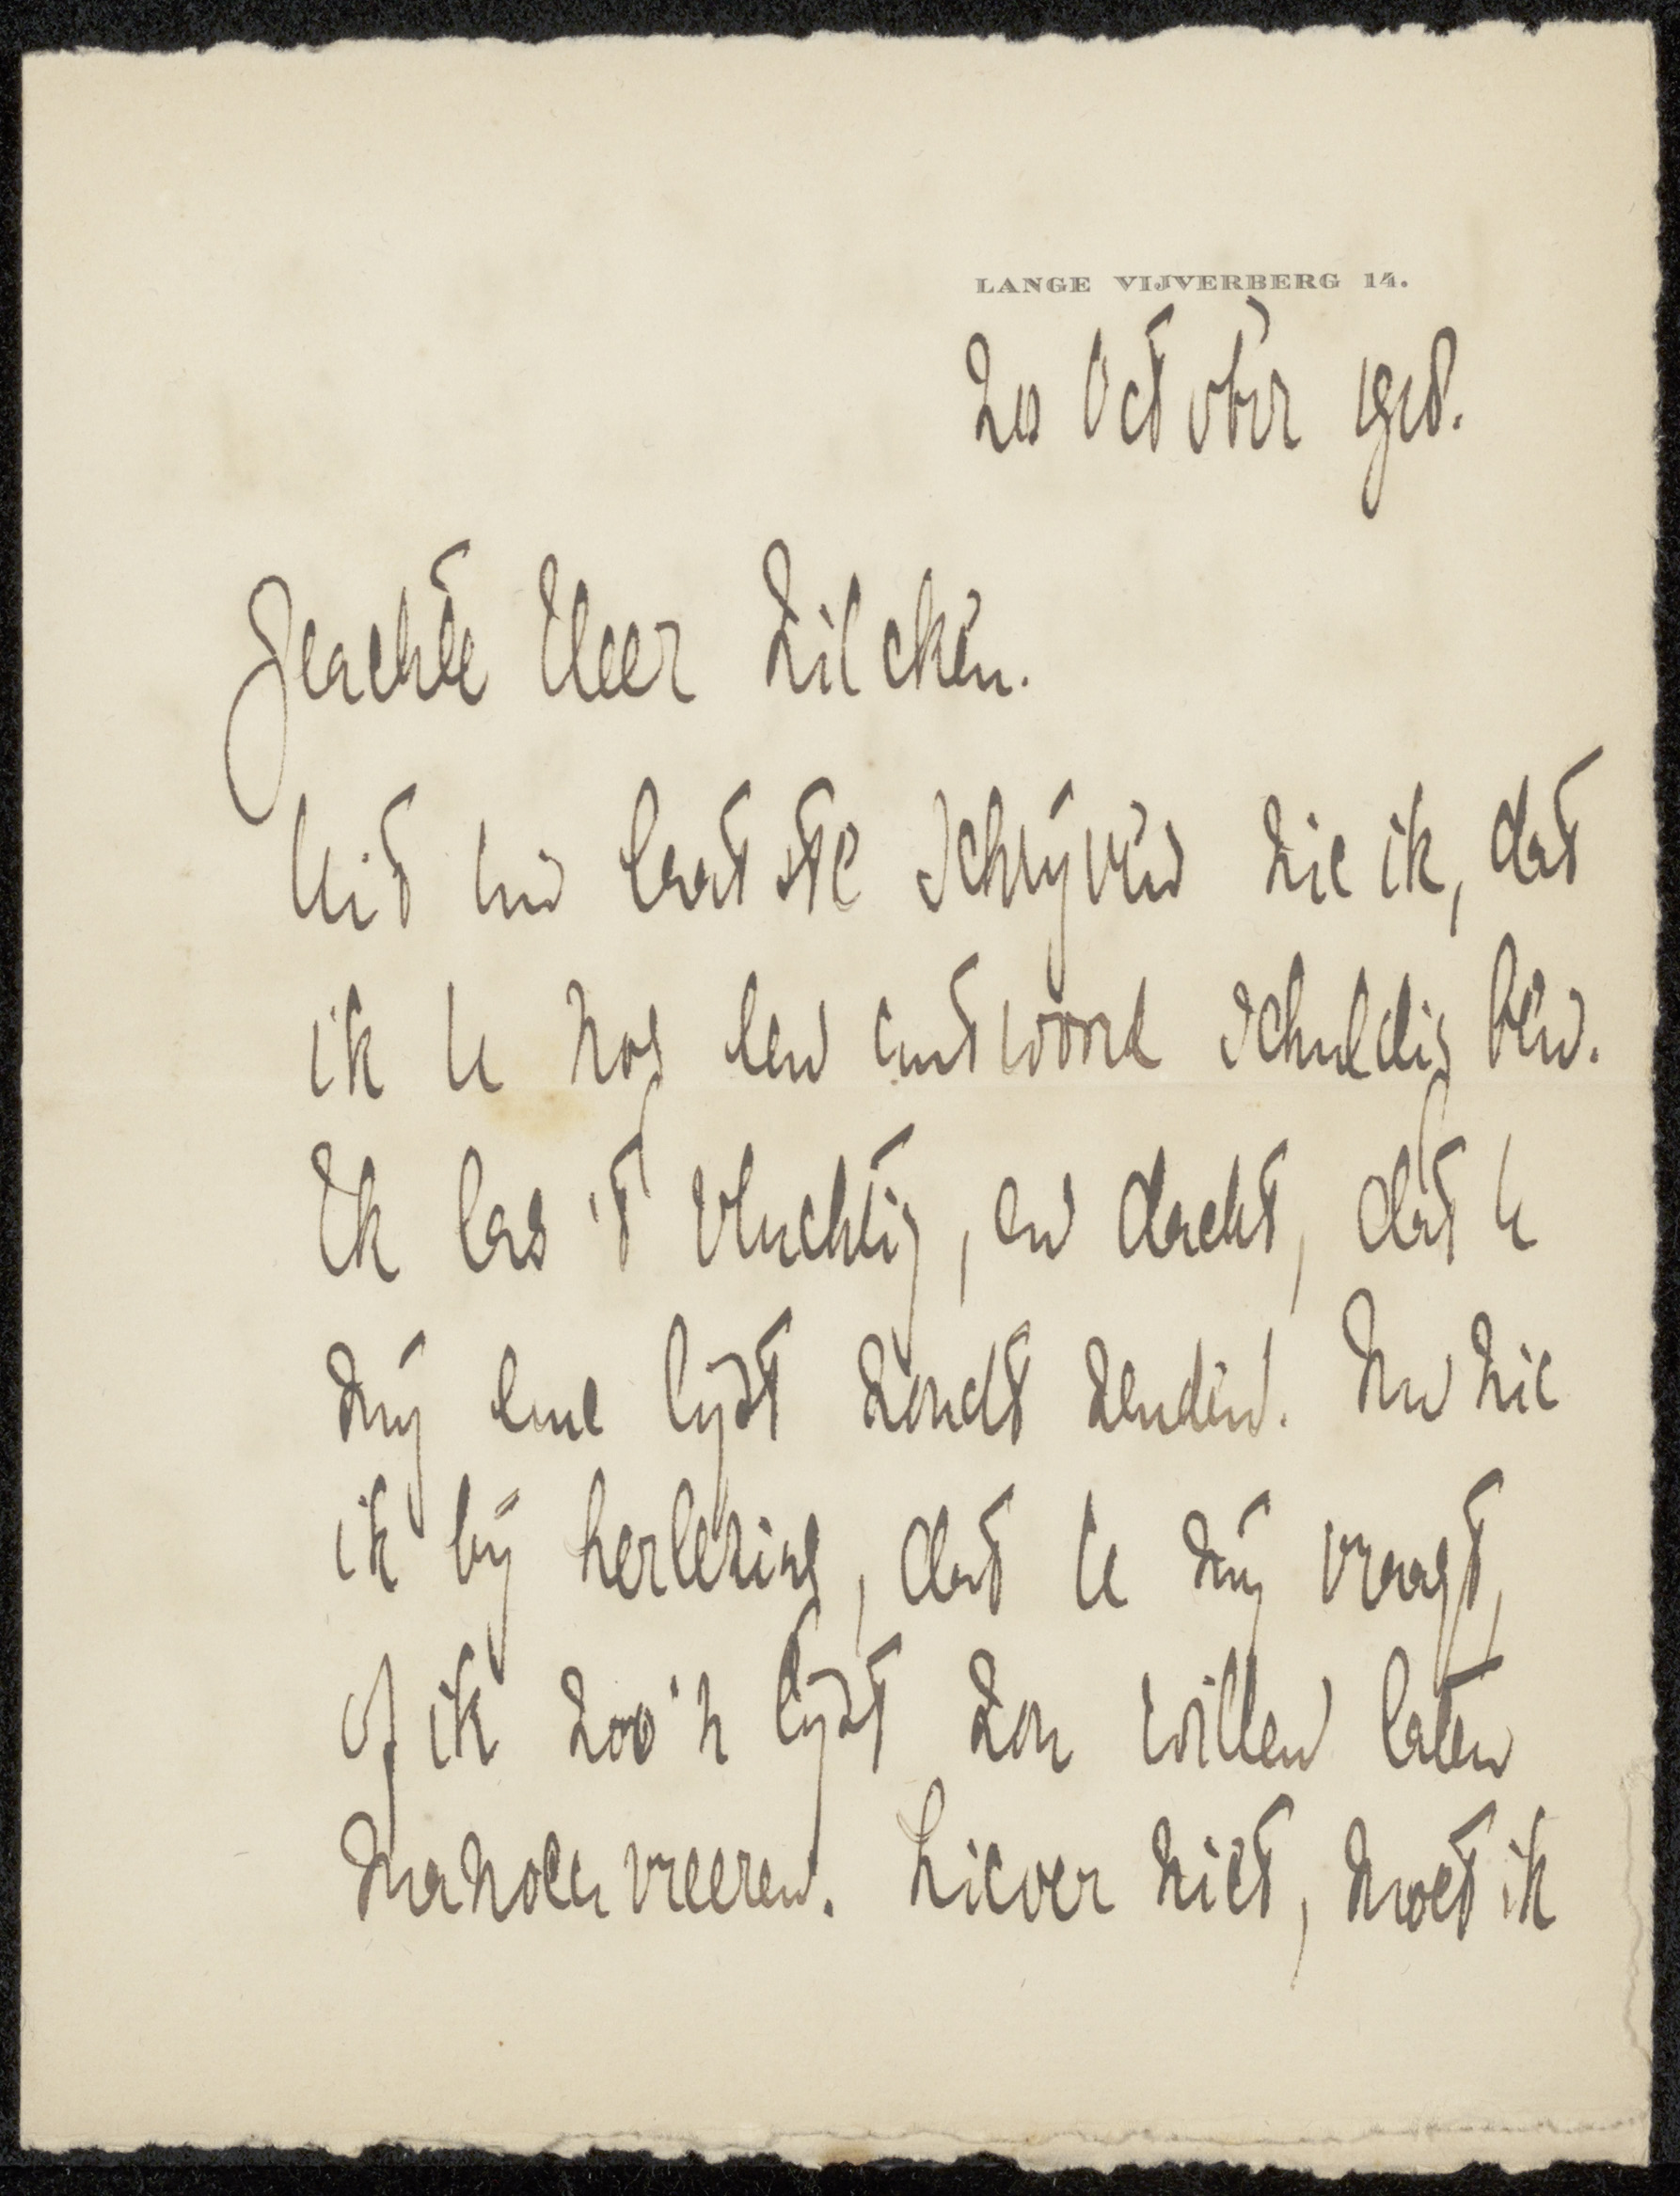 LANGE VIJVERBERG 14.
20 October 1918.
Geachte Heer Zilcken.
Uit Uw laatste schrijven zie ik, dat
ik U nog een antwoord schuldig ben.
Ik las 't vluchtig, en dacht, dat U
mij eene lijst zoudt zenden. Nu zie
ik bij herlezing, dat U mij vraagt,
of ik zoo'n lijst zou willen laten
manoeuvreeren. Liever niet, moet ik